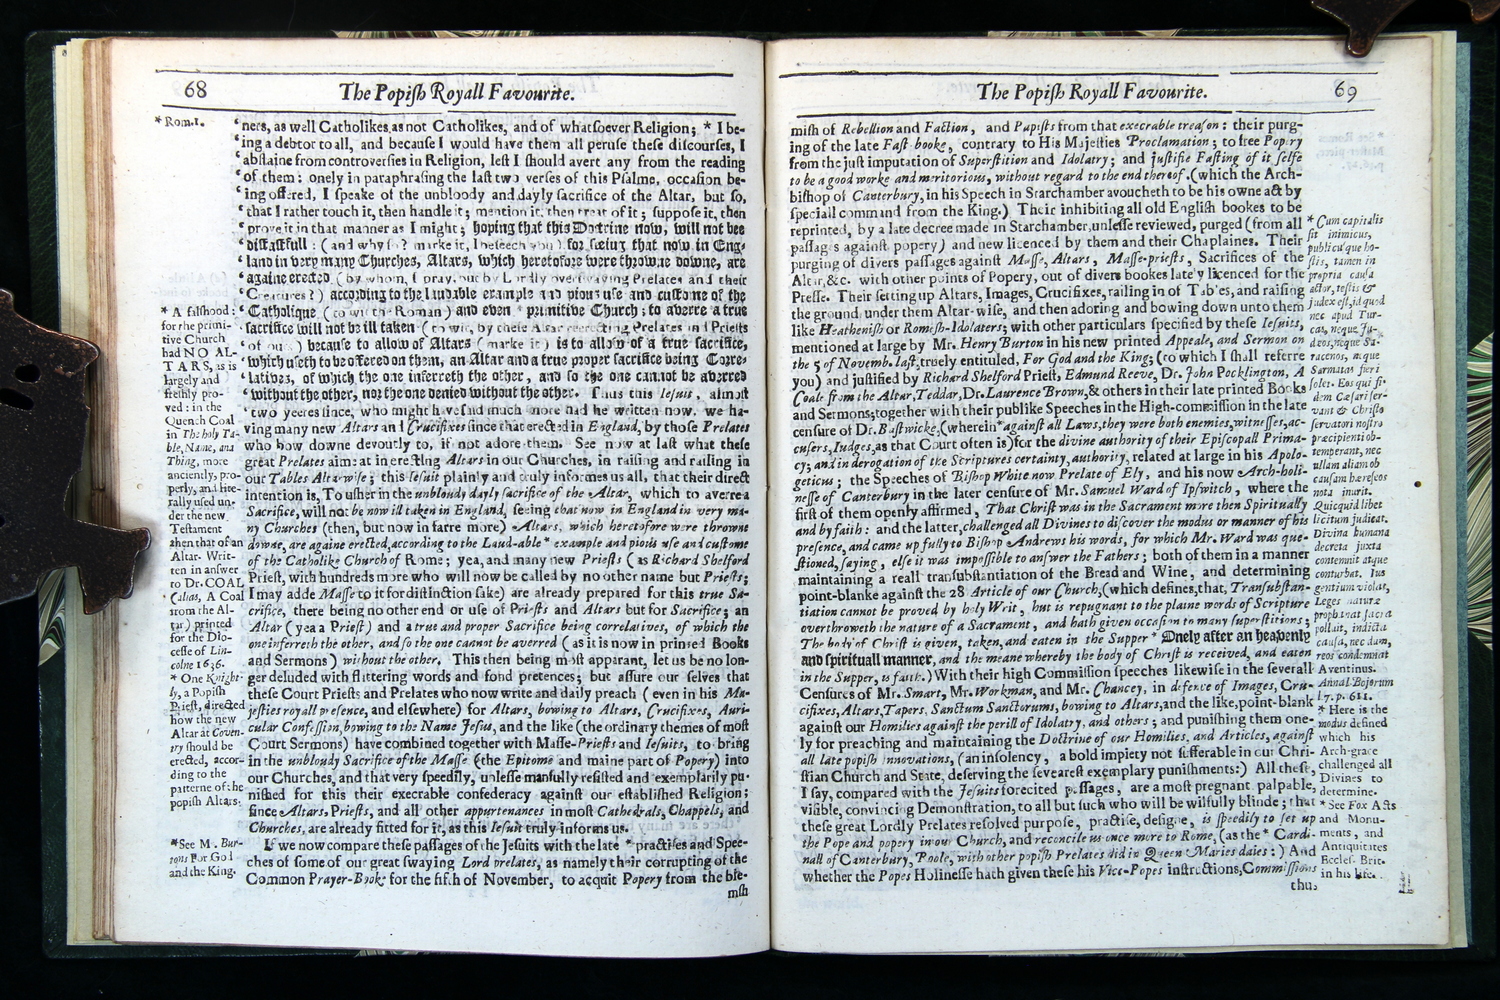 68
The Popish Royall Favourite.
* Rom.1.
‘ners, as well Catholikes as not Catholikes, and of whatsoever Religion; * I be-
‘ing a debtor to all, and because I would have them all peruse these discourses, I
‘abstaine from controversies in Religion, lest I should avert any from the reading
‘of them: onely in paraphrasing the last two verses of this Psalme, occasion be-
‘ing offered, I speake of the unbloody and dayly sacrifice of the Altar, but so,
‘that I rather touch it, then handle it; mention it, then treat of it; suppose it, then
‘prove it in that manner as I might; hoping that this Doctrine now, will not bee
‘distastfull: (and why so? marke it, I beseech you) for seeing that now in Eng-
‘land in very many Churches, Altars, which heretofore were throwne downe, are
‘againe erected (by whom, I pray, but by Lordly overswaying Prelates and their
‘Creatures?) according to the laudable example and pious use and custome of the
‘Catholique (to wit the Roman) and even primitive Church; to averre a true
‘sacrifice will not be ill taken (to wit, by these Altar reerecting Prelates and Priests
‘of ours) because to allow of Altars (marke it) is to allow of a true sacrifice,
‘which useth to be offered on them, an Altar and a true proper sacrifice being Corre-
‘latives, of which the one inferreth the other, and so the one cannot be averred
‘without the other, nor the one denied without the other. Thus this Iesuit, almost
‘two yeeres since, who might have said much more had he written now, we ha-
ving many new Altars and Crucifixes since that erected in England, by those Prelates
who bow downe devoutly to, if not adore them. See now at last what these
great Prelates aim: at in erecting Altars in our Churches, in raising and railing in
our Tables Altarwise; this Iesuit plainly and truly informes us all, that their direct
intention is, To usher in the unbloudy dayly sacrifice of the Altar, which to averre a
Sacrifice, will not be now ill taken in England, seeing that now in England in very ma-
ny Churches (then, but now in farre more) Altars, which heretofore were throwne
downe, are againe erected, according to the Laud-able * example and pious use and custome
of the Catholike Church of Rome; yea, and many new Priests (as Richard Shelford
Priest, with hundreds more who will now be called by no other name but Priests;
I may adde Masse to it for distinction sake) are already prepared for this true Sa-
crifice, there being no other end or use of Priests and Altars but for Sacrifice; an
Altar (yea a Priest) and a true and proper Sacrifice being correlatives, of which the
one inferreth the other, and so the one cannot be averred (as it is now in printed Books
and Sermons) without the other. This then being most apparant, let us be no lon-
ger deluded with flattering words and fond pretences; but assure our selves that
these Court Priests and Prelates who now write and daily preach (even in his Ma-
jesties royall presence, and elsewhere) for Altars, bowing to Altars, Crucifixes, Auri-
cular Confession, bowing to the Name Jesus, and the like (the ordinary themes of most
Court Sermons) have combined together with Masse-Priests and Iesuits, to bring
in the unbloudy Sacrifice of the Masse (the Epitome and maine part of Popery) into
our Churches, and that very speedily, unlesse manfully resisted and exemplarily pu-
nished for this their execrable confederacy against our established Religion;
since Altars, Priests, and all other appurtenances in most Cathedrals, Chappels, and
Churches, are already fitted for it, as this Iesuit truly informs us.
If we now compare these passages of the Jesuits with the late * practises and Spee-
ches of some of our great swaying Lord prelates, as namely their corrupting of the
Common Prayer-Booke for the fifth of November, to acquit Popery from the ble-
mish
* A falshood:
for the primi-
tive Church
had NO AL-
TARS, as is
largely and
freshly pro-
ved: in the
Quench Coal
in The holy Ta-
ble, Name, and
Thing, more
anciently, pro-
perly, and lite-
rally used un-
der the new
Testament
then that of an
Altar. Writ-
ten in answer
to Dr. COAL
(alias, A Coal
from the Al-
tar) printed
for the Dio-
cesse of Lin-
colne 1636.
* One Knight-
ly, a Popish
Priest, directed
how the new
Altar at Coven-
try should be
erected, accor-
ding to the
patterne of the
popish Altars.
*See M. Bur-
tons For God
and the King.
The Popish Royall Favourite.
69
mish of Rebellion and Faction, and Papists from that execrable treason: their purg-
ing of the late Fast-booke, contrary to His Majesties Proclamation; to free Popery
from the just imputation of Superstition and Idolatry; and justifie Fasting of it selfe
to be a good worke and meritorious, without regard to the end thereof. (which the Arch-
bishop of Canterbury, in his Speech in Starchamber avoucheth to be his owne act by
speciall command from the King.) Their inhibiting all old English bookes to be
reprinted, by a late decree made in Starchamber, unlesse reviewed, purged (from all
passages against popery) and new licenced by them and their Chaplaines. Their
purging of divers passages against Masse, Altars, Masse-priests, Sacrifices of the
Altar, &c. with other points of Popery, out of divers bookes lately licenced for the
Presse. Their setting up Altars, Images, Crucifixes, railing in of Tables, and raising
the ground under them Altar-wise, and then adoring and bowing down unto them
like Heathenish or Romish-Idolaters; with other particulars specified by these Iesuits,
mentioned at large by Mr. Henry Burton in his new printed Appeale, and Sermon on
the 5 of Novemb. last, truely entituled, For God and the King; (to which I shall referre
you) and justified by Richard Shelford Priest, Edmund Reeve, Dr. John Pocklington, A
Coale from the Altar, Teddar, Dr. Laurence Brown, & others in their late printed Books
and Sermons; together with their publike Speeches in the High-commission in the late
censure of Dr. Bastwicke, (wherein * against all Laws, they were both enemies, witnesses, ac-
cusers, Iudges, as that Court often is) for the divine authority of their Episcopall Prima-
cy; and in derogation of the Scriptures certainty, authority, related at large in his Apolo-
geticus; the Speeches of Bishop White now Prelate of Ely, and his now Arch-holi-
nesse of Canterbury in the later censure of Mr. Samuel Ward of Ipswitch, where the
first of them openly affirmed, That Christ was in the Sacrament more then Spiritually
and by faith: and the latter, challenged all Divines to discover the modus or manner of his
presence, and came up fully to Bishop Andrews his words, for which Mr. Ward was que-
stioned, saying, else it was impossible to answer the Fathers; both of them in a manner
maintaining a reall transubstantiation of the Bread and Wine, and determining
point-blanke against the 28 Article of our Church, (which defines, that, Transubstan-
tiation cannot be proved by holy Writ, but is repugnant to the plaine words of Scripture
overthroweth the nature of a Sacrament, and hath given occasion to many superstitions;
The body of Christ is given, taken, and eaten in the Supper * Onely after an heavenly
and spirituall manner, and the meane whereby the body of Christ is received, and eaten
in the Supper, is faith.) With their high Commission speeches likewise in the severall
Censures of Mr. Smart, Mr. Workman, and Mr. Chancey, in defence of Images, Cru-
cifixes, Altars, Tapers, Sanctum Sanctorums, bowing to Altars, and the like, point-blank
against our Homilies against the perill of Idolatry, and others; and punishing them one-
ly for preaching and maintaining the Doctrine of our Homilies, and Articles, against
all late popish innovations, (an insolency, a bold impiety not sufferable in our Chri-
stian Church and State, deserving the severest exemplary punishments:) All these,
I say, compared with the Jesuits forecited passages, are a most pregnant palpable,
visible, convincing Demonstration, to all but such who will be wilfully blinde; that
these great Lordly Prelates resolved purpose, practise, designe, is speedily to set up
the Pope and popery in our Church, and reconcile us once more to Rome, (as the * Cardi-
nall of Canterbury, Poole, with other popish Prelates did in Queen Maries daies:) And
whether the Popes Holinesse hath given these his Vice-Popes instructions, Commissions
thus
* Cum capitalis
sit inimicus,
publicúque ho-
stis, tamen in
propria causa
actor, testis &
judex est, id quod
nec apud Tur-
cas, neque Ju-
dæos, neque Sa-
racenos, neque
Sarmatas fieri
solet. Eos qui fi-
dem Cæsari ser-
vant & Christo
servatori nostro
præcipienti ob-
temperant, nec
ullam aliam ob
causam hæreseos
nota inurit.
Quicquid libet
licitum judicat.
Divina humana
decreta juxta
contemnit atque
conturbat. Ius
gentium violat,
Leges naturæ
prophanat sacra
polluit, indicta
causa, nec dum,
reos condemnat
Aventinus.
Annal. Bojorum
l. 7. p. 611.
* Here is the
modus defined
which his
Arch-grace
challenged all
Divines to
determine.
* See Fox Acts
and Monu-
ments, and
Antiquitates
Eccles. Brit.
in his life.